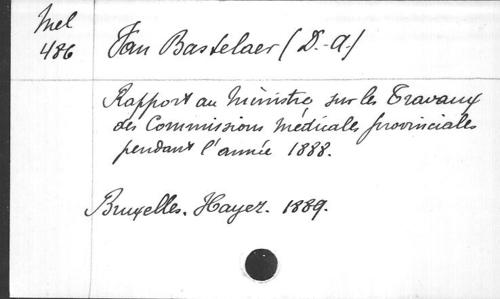 Mel
486
Van Bastelaer (D.-A.)
Rapport au Ministre sur les Travaux
des Commissions médicales provinciales
pendant l'année 1888.
Bruxelles. Hayez. 1889.